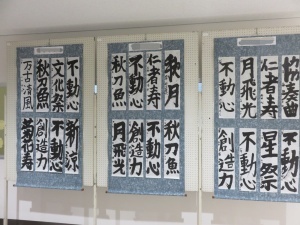 協奏曲
仁者寿
月飛光
不動心
秋刀魚
星祭
不動心
創造力
秋月
仁者寿
不動心
秋刀魚
秋刀魚
不動心
創造力
月飛光
不動心
文化祭
秋刀魚
万古清風
新涼
不動心
創造力